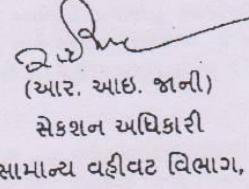 (આર. આઇ. જાની)
સેકશન અધિકારી
સામાન્ય વહીવટ વિભાગ,